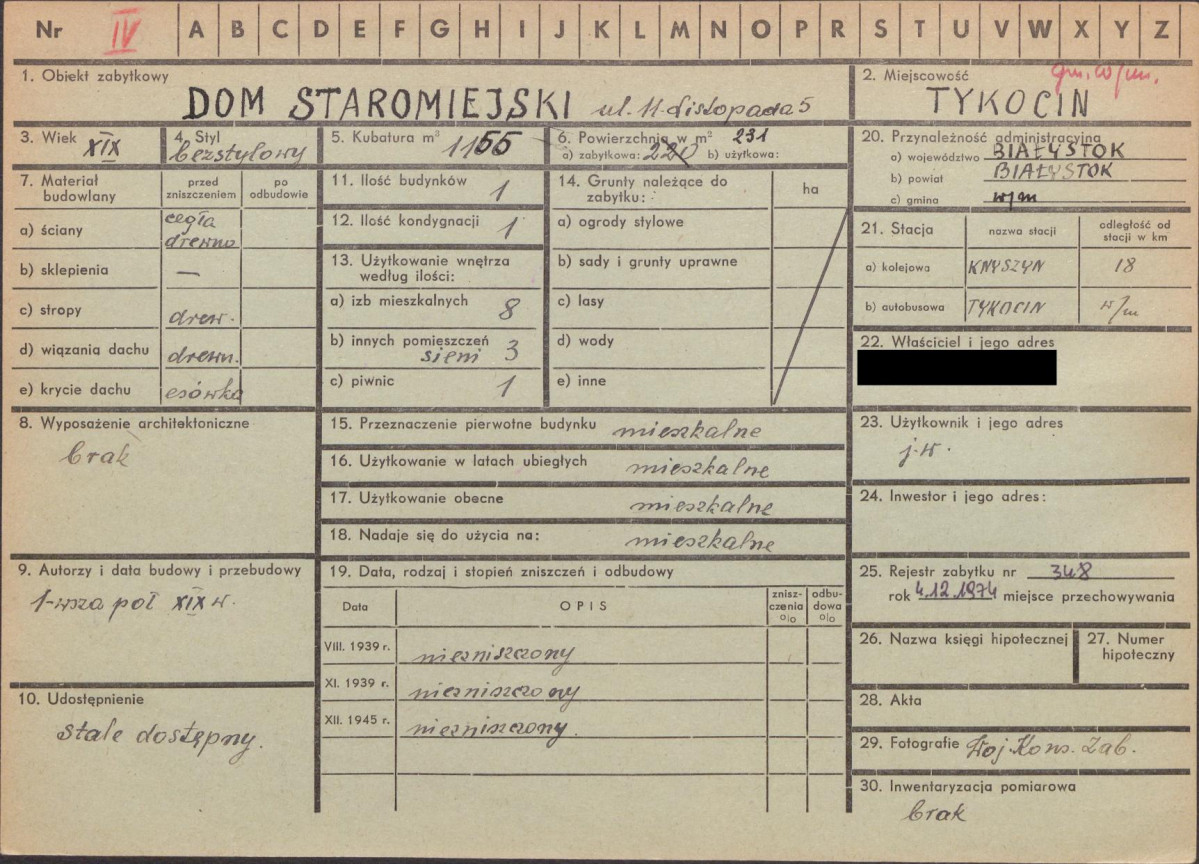 Nr IV A B C D E F G H I J K L M N O P R S T U V W X Y Z
1. Obiekt zabytkowy
DOM STAROMIEJSKI ul. 11-Listopada 5
2. Miejscowość
gm. w/m.
TYKOCIN
3. Wiek XIX
4. Styl
bezstylowy
5. Kubatura m³ 1155
6. Powierzchnia w m² 231
a) zabytkowa: 220 b) użytkowa:
20. Przynależność administracyjna
a) województwo BIAŁYSTOK
b) powiat BIAŁYSTOK
c) gmina w/m
7. Materiał budowlany
przed zniszczeniem
po odbudowie
a) ściany cegła
drewno
b) sklepienia —
c) stropy drew.
d) wiązania dachu drewn.
e) krycie dachu esówka
11. Ilość budynków 1
12. Ilość kondygnacji 1
13. Użytkowanie wnętrza
według ilości:
a) izb mieszkalnych 8
b) innych pomieszczeń
sieni 3
c) piwnic 1
14. Grunty należące do
zabytku:
ha
a) ogrody stylowe
b) sady i grunty uprawne
c) lasy
d) wody
e) inne
21. Stacja
nazwa stacji
odległość od
stacji w km
a) kolejowa KNYSZYN 18
b) autobusowa TYKOCIN w/m
22. Właściciel i jego adres
8. Wyposażenie architektoniczne
brak
15. Przeznaczenie pierwotne budynku mieszkalne
16. Użytkowanie w latach ubiegłych mieszkalne
17. Użytkowanie obecne mieszkalne
18. Nadaje się do użycia na: mieszkalne
23. Użytkownik i jego adres
j.w.
24. Inwestor i jego adres:
9. Autorzy i data budowy i przebudowy
1-wsza poł XIX w.
19. Data, rodzaj i stopień zniszczeń i odbudowy
Data
OPIS
znisz-
czenia
%
odbu-
dowa
%
VIII. 1939 r. niezniszczony
XI. 1939 r. niezniszczony
XII. 1945 r. niezniszczony.
10. Udostępnienie
stale dostępny.
25. Rejestr zabytku nr 348
rok 4.12.1974 miejsce przechowywania
26. Nazwa księgi hipotecznej
27. Numer
hipoteczny
28. Akta
29. Fotografie Woj. Kons. Zab.
30. Inwentaryzacja pomiarowa
brak